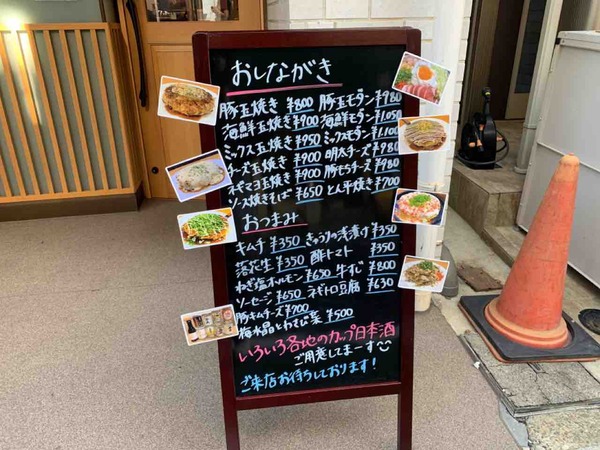 おしながき
豚玉焼き ¥800 豚玉モダン ¥980
海鮮玉焼き ¥900 海鮮モダン ¥1,050
ミックス玉焼き ¥950 ミックスモダン ¥1,100
チーズ玉焼き ¥900 明太チーズ ¥980
ネギマヨ玉焼き ¥900 豚もちチーズ ¥980
ソース焼きそば ¥650 とん平焼き ¥700
おつまみ
キムチ ¥350 きゅうりの浅漬け ¥350
落花生 ¥350 酢トマト ¥350
ねぎ塩ホルモン ¥650 牛すじ ¥800
ソーセージ ¥650 ネギトロ豆腐 ¥630
豚キムチーズ ¥700
梅水晶とわさび菜 ¥500
いろいろ各地のカップ日本酒
ご用意してまーす
ご来店お待ちしております!